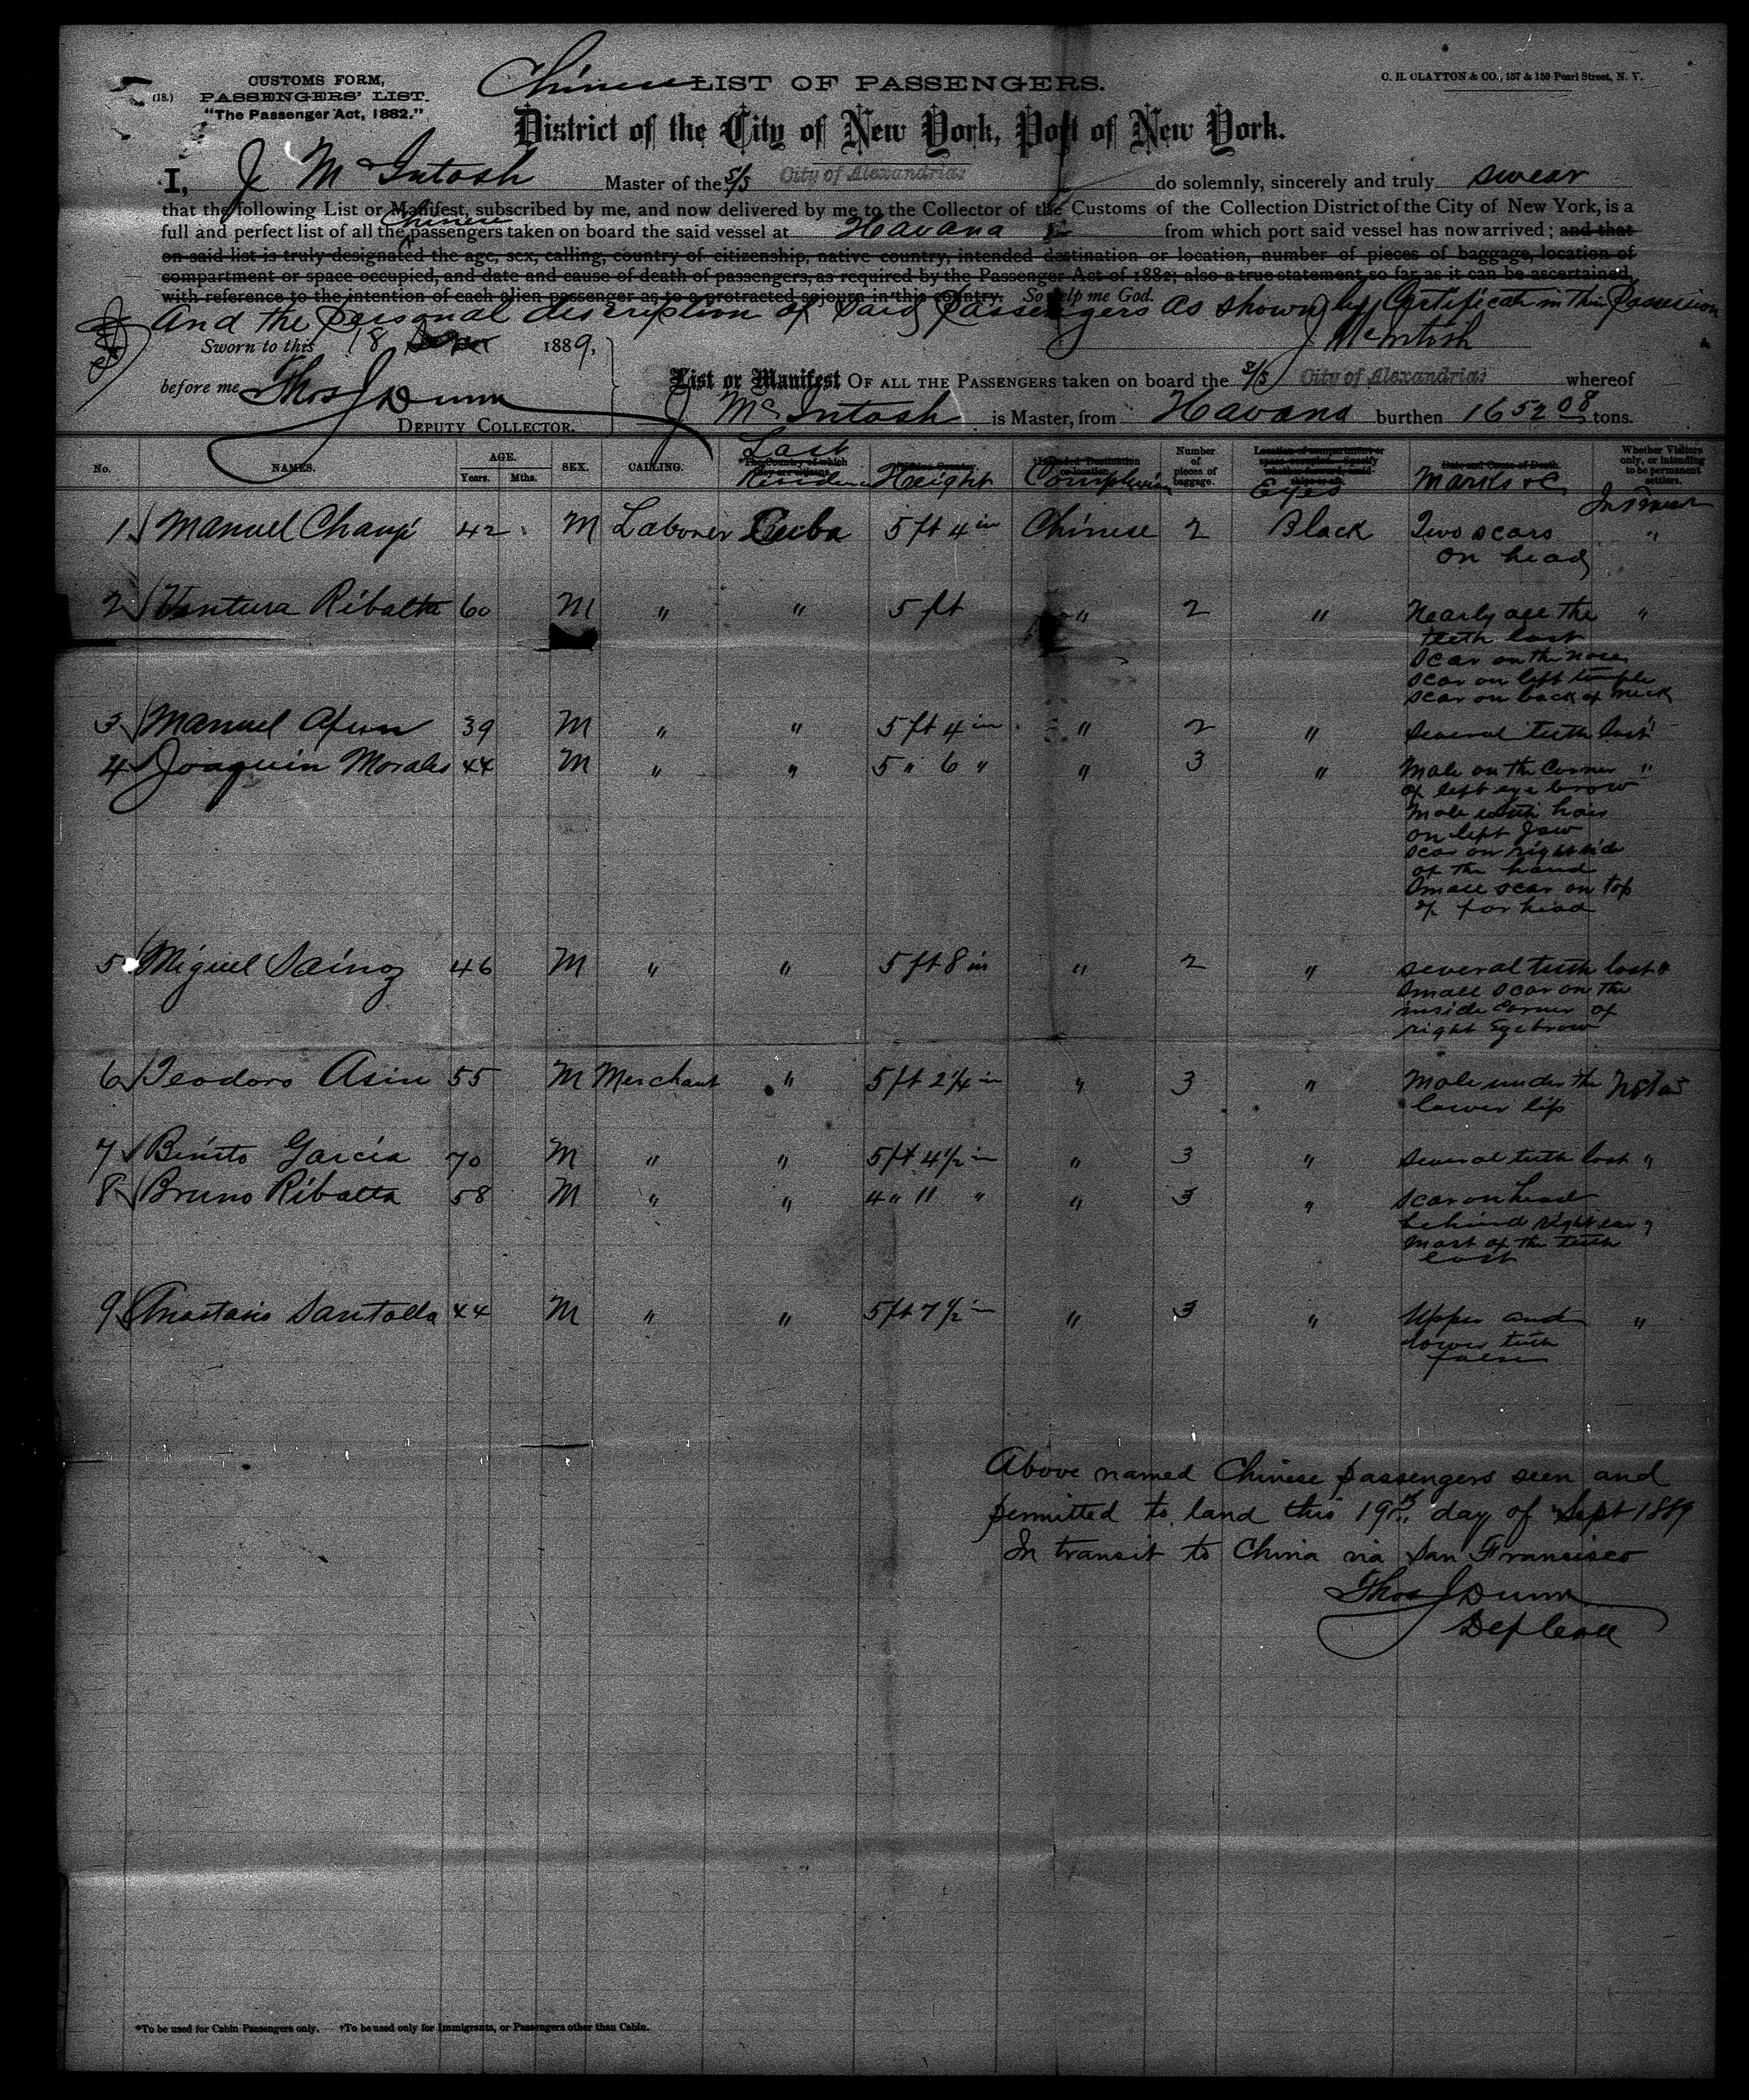 (18.)
CUSTOMS FORM,
PASSENGERS' LIST.
"The Passenger Act, 1882."
Chinese LIST OF PASSENGERS.
C. H. CLAYTON & CO., 157 & 159 Pearl Street, N. Y.
District of the City of New York, Port of New York.
I, J McIntosh Master of the S/S City of Alexandria do solemnly, sincerely and truly swear
that the following List or Manifest, subscribed by me, and now delivered by me to the Collector of the Customs of the Collection District of the City of New York, is a
full and perfect list of all the Chinese passengers taken on board the said vessel at Havana from which port said vessel has now arrived; and that
on said list is truly designated the age, sex, calling, country of citizenship, native country, intended destination or location, number of pieces of baggage, location of
compartment or space occupied, and date and cause of death of passengers, as required by the Passenger Act of 1882; also a true statement, so far as it can be ascertained,
with reference to the intention of each alien passenger as to a protracted sojourn in this country. So help me God.
And the personal description of said Passengers as shown by Certificate in their Possession
Sworn to this 18 1889,
J McIntosh
before me Thos J Dunn
DEPUTY COLLECTOR.
List or Manifest OF ALL THE PASSENGERS taken on board the S/S City of Alexandria whereof
J McIntosh is Master, from Havana burthen 1652 08 tons.
No. NAMES. AGE. Years. Mths. SEX. CALLING. Last Residence Height Complexion Number of pieces of baggage. Eyes Marks &c Whether Visitors only, or intending to be permanent settlers.
*The Country of which they are citizens.
Date and Cause of Death.
In Transit
1 Manuel Changi 42 M Laborer Cuba 5 ft 4 in Chinese 2 Black Two scars "
on head
2 Ventura Ribalta 60 M " " 5 ft " 2 " Nearly all the "
teeth lost
Scar on the nose
scar on left temple
scar on back of neck
3 Manuel Afun 39 M " " 5 ft 4 in " 2 " Several teeth lost "
4 Joaquin Morales 44 M " " 5 " 6 " " 3 " Mole on the corner "
of left eye brow
Mole with hair
on left Jaw
scar on right side
of the hand
Small scar on top
of for head
5 Miguel Sainz 46 M " " 5 ft 8 in " 2 " several teeth lost "
Small scar on the
inside corner of
right Eyebrow
6 Teodoro Asin 55 M Merchant " 5 ft 2 1/4 in " 3 " Mole under the
lower lip
7 Benito Garcia 70 M " " 5 ft 4 1/2 in " 3 " Several teeth lost "
8 Bruno Ribalta 58 M " " 4 " 11 " " 3 " Scar on head
behind right ear "
Most of the teeth
lost
9 Anastasio Santolla 44 M " " 5 ft 7 1/2 in " 3 " Upper and "
lower teeth
false
Above named Chinese passengers seen and
permitted to land this 19th day of Sept 1889
In transit to China via San Francisco
Thos J Dunn
*To be used for Cabin Passengers only. †To be used only for Immigrants, or Passengers other than Cabin.